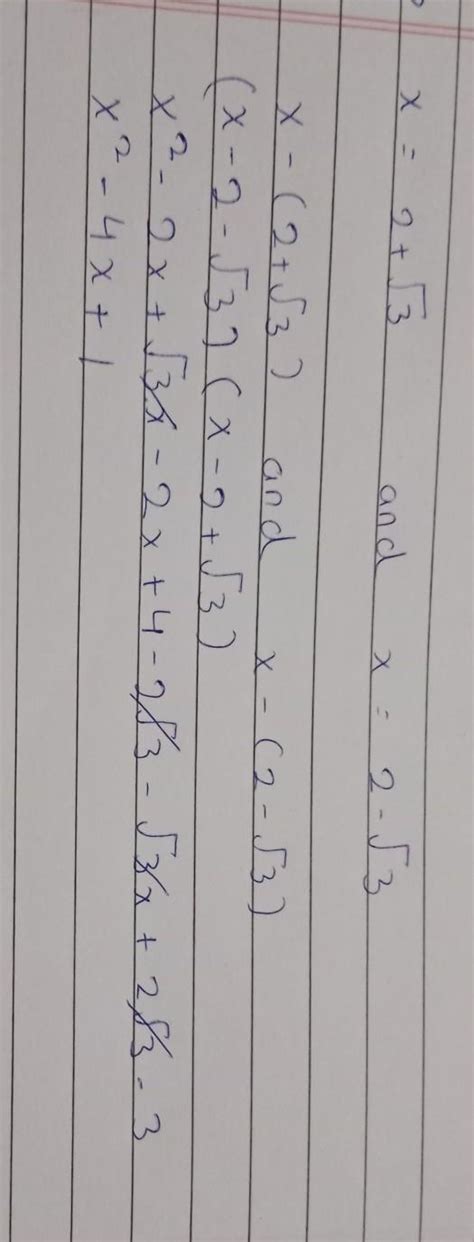 x = 2+√3 and x = 2-√3
x-(2+√3) and x-(2-√3)
(x-2-√3)(x-2+√3)
x² - 2x + √3x - 2x + 4 - 2√3 - √3x + 2√3 - 3
x² - 4x + 1